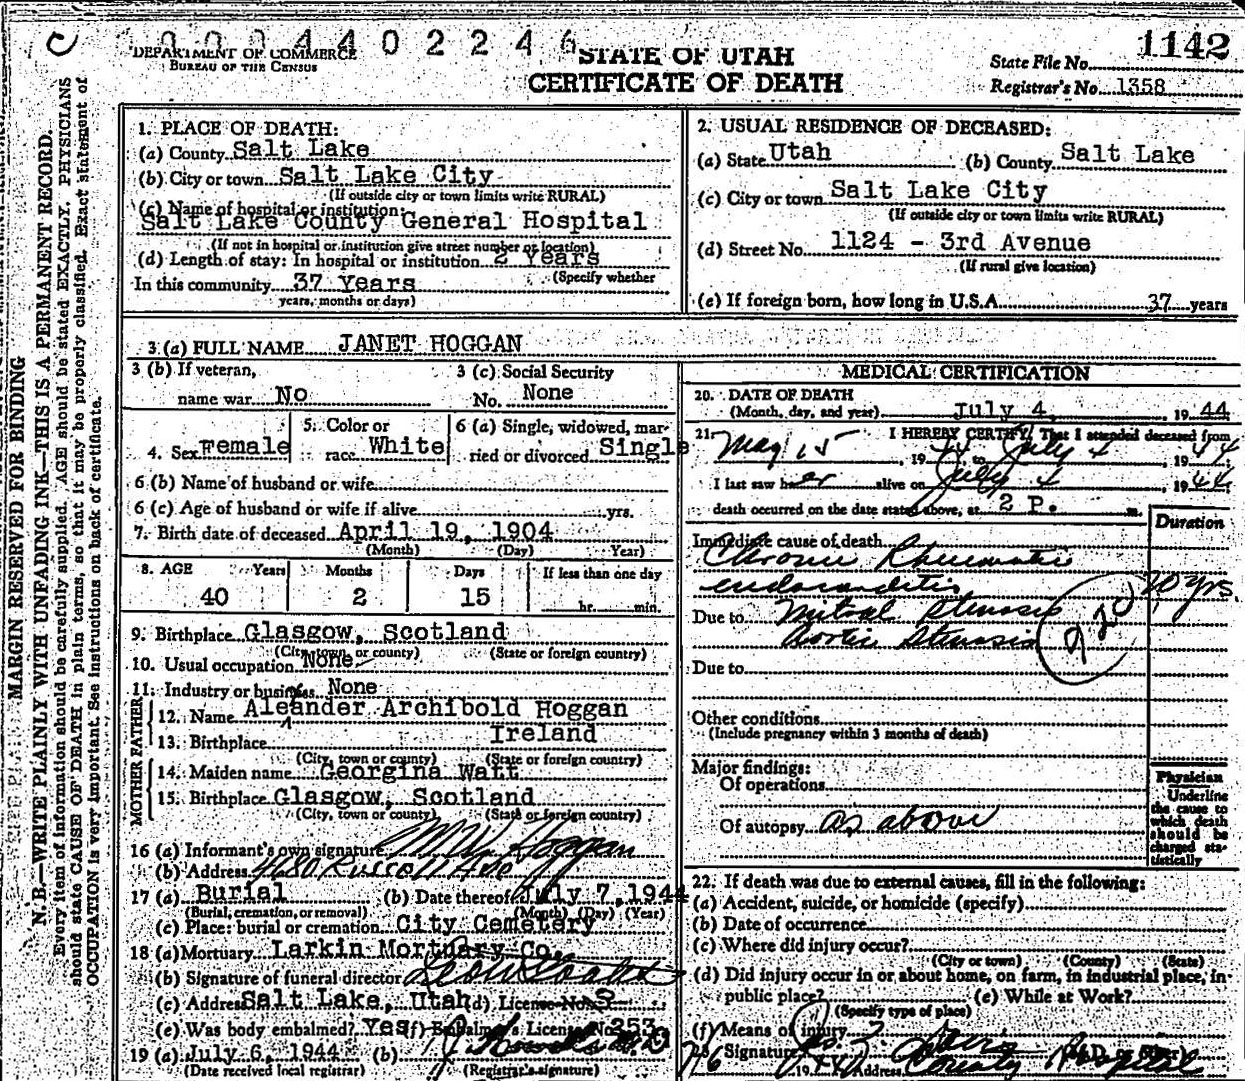 00 4402246
DEPARTMENT OF COMMERCE
BUREAU OF THE CENSUS
STATE OF UTAH
CERTIFICATE OF DEATH
1142
State File No.
Registrar's No. 1358
MARGIN RESERVED FOR BINDING
N. B.—WRITE PLAINLY WITH UNFADING INK—THIS IS A PERMANENT RECORD.
Every item of information should be carefully supplied. AGE should be stated EXACTLY. PHYSICIANS
should state CAUSE OF DEATH in plain terms, so that it may be properly classified. Exact statement of
OCCUPATION is very important. See instructions on back of certificate.
1. PLACE OF DEATH:
(a) County Salt Lake
(b) City or town Salt Lake City
(If outside city or town limits write RURAL)
(c) Name of hospital or institution:
Salt Lake County General Hospital
(If not in hospital or institution give street number or location)
(d) Length of stay: In hospital or institution 2 Years
(Specify whether
In this community 37 Years
years, months or days)
2. USUAL RESIDENCE OF DECEASED:
(a) State Utah (b) County Salt Lake
(c) City or town Salt Lake City
(If outside city or town limits write RURAL)
(d) Street No. 1124 - 3rd Avenue
(If rural give location)
(e) If foreign born, how long in U.S.A. 37 years
3 (a) FULL NAME JANET HOGGAN
3 (b) If veteran, 3 (c) Social Security
name war No No. None
4. Sex Female 5. Color or race White 6 (a) Single, widowed, married or divorced Single
6 (b) Name of husband or wife
6 (c) Age of husband or wife if alive yrs.
7. Birth date of deceased April 19, 1904
(Month) (Day) Year)
8. AGE Years Months Days If less than one day
40 2 15 hr. min.
9. Birthplace Glasgow, Scotland
(City, town, or county) (State or foreign country)
10. Usual occupation None
11. Industry or business None
FATHER
12. Name Alexander Archibold Hoggan
13. Birthplace Ireland
(City, town or county) (State or foreign country)
MOTHER
14. Maiden name Georgina Watt
15. Birthplace Glasgow, Scotland
(City, town or county) (State or foreign country)
16 (a) Informant's own signature M W Hoggan
(b) Address 4680 Russell Ave
17 (a) Burial (b) Date thereof July 7, 1944
(Burial, cremation, or removal) (Month) (Day) (Year)
(c) Place: burial or cremation City Cemetery
18 (a) Mortuary Larkin Mortuary Co.
(b) Signature of funeral director
(c) Address Salt Lake, Utah d) License No. 3
(e) Was body embalmed? Yes f) Embalmer's License No. 353
19 (a) July 6, 1944 (b)
(Date received local registrar) (Registrar's signature)
MEDICAL CERTIFICATION
20. DATE OF DEATH
(Month, day, and year) July 4, 1944
21. I HEREBY CERTIFY, That I attended deceased from
May 15, 1944, to July 4, 1944
I last saw her alive on July 4 1944
death occurred on the date stated above, at 2 P. m.
Duration
Immediate cause of death
Chronic Rheumatic
endocarditis 20 yrs.
Due to Mitral Stenosis
Aortic Stenosis
920
Due to
Other conditions
(Include pregnancy within 3 months of death)
Major findings:
Of operations
Of autopsy as above
Physician
Underline
the cause to
which death
should be
charged sta-
tistically
22. If death was due to external causes, fill in the following:
(a) Accident, suicide, or homicide (specify)
(b) Date of occurrence
(c) Where did injury occur?
(City or town) (County) (State)
(d) Did injury occur in or about home, on farm, in industrial place, in
public place? (e) While at Work?
(Specify type of place)
(f) Means of injury
23 Signature
7/6 1944 Address County Hospital